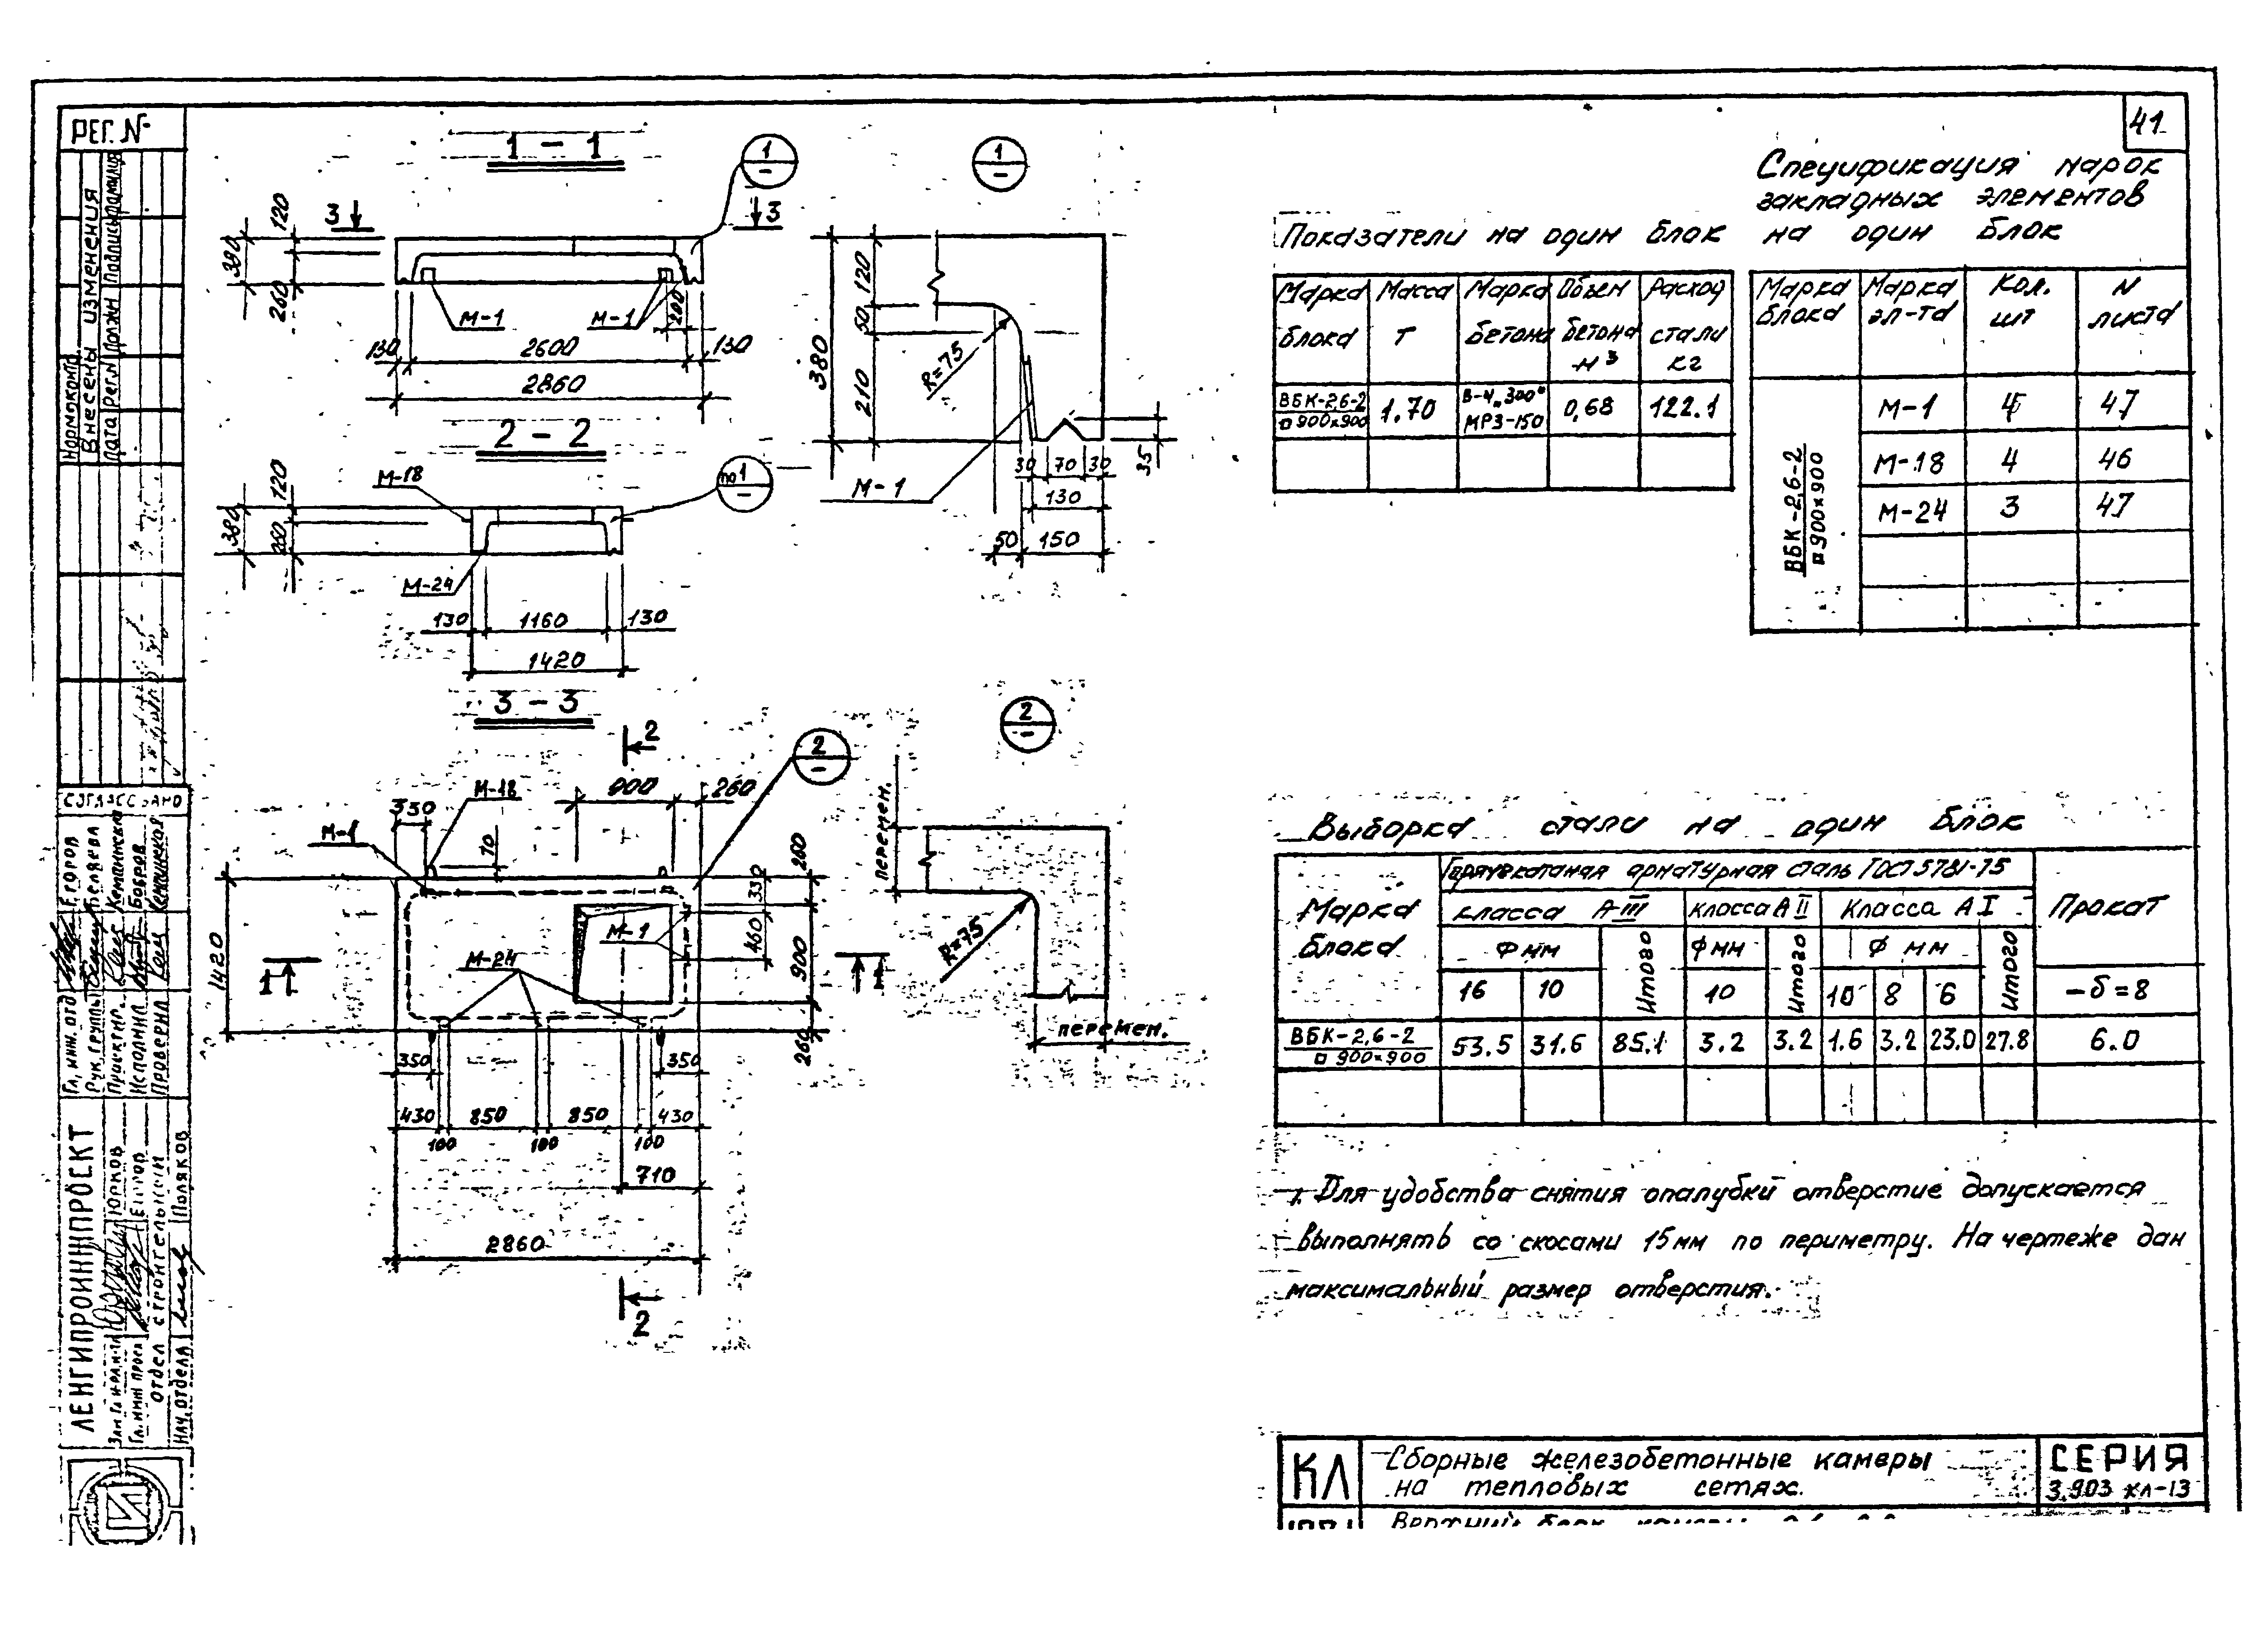 41
РЕГ. №
1 – 1
1
–
1
–
3
3
380
120
260
М-1
М-1
200
130
2600
130
2860
120
50
380
210
R=75
М-1
30 70 30
130
50 150
35
2 – 2
М-18
по 1
–
380
120
260
М-24
130 1160 130
1420
3 – 3
2
2
–
2
–
900
260
М-18
330
М-1
70
260
330
460
900
260
М-1
М-24
1420
1
1
350
350
430 850 850 430
100 100 100
710
2860
2
перемен.
R=75
перемен.
Показатели на один блок
Марка блока
Масса Т
Марка бетона
Объем бетона м³
Расход стали кг
ВБК-2,6-2
□ 900×900
1.70
В-4 „300"
МРЗ-150
0,68
122.1
Спецификация марок
закладных элементов
на один блок
Марка блока
Марка эл-та
Кол. шт
N листа
ВБК-2,6-2
□ 900×900
М-1 4 47
М-18 4 46
М-24 3 47
Выборка стали на один блок
Марка блока
Горячекатаная арматурная сталь ГОСТ 5781-75
Прокат
класса А-III
класса А II
Класса А I
Ф мм
Итого
Ф мм
Итого
Ф мм
Итого
16 10 10 10 8 6 –δ=8
ВБК-2,6-2
□ 900×900
53.5 31.6 85.1 3.2 3.2 1.6 3.2 23.0 27.8 6.0
1. Для удобства снятия опалубки отверстие допускается
выполнять со скосами 15мм по периметру. На чертеже дан
максимальный размер отверстия.
КЛ
Сборные железобетонные камеры
на тепловых сетях.
СЕРИЯ
3.903 КЛ-13
Нормоконтр
Внесены изменения
Дата Рег.N Должн Подпись Фамилия
СОГЛАСОВАНО
Гл. инж. отд ЕГОРОВ
Рук. группы Беляева
Проектир.
Исполнил Бобров
Проверил
ЛЕНГИПРОИНЖПРОЕКТ
Юрков
Гл. инж проек Егоров
отдел строительный
Нач. отдела Поляков